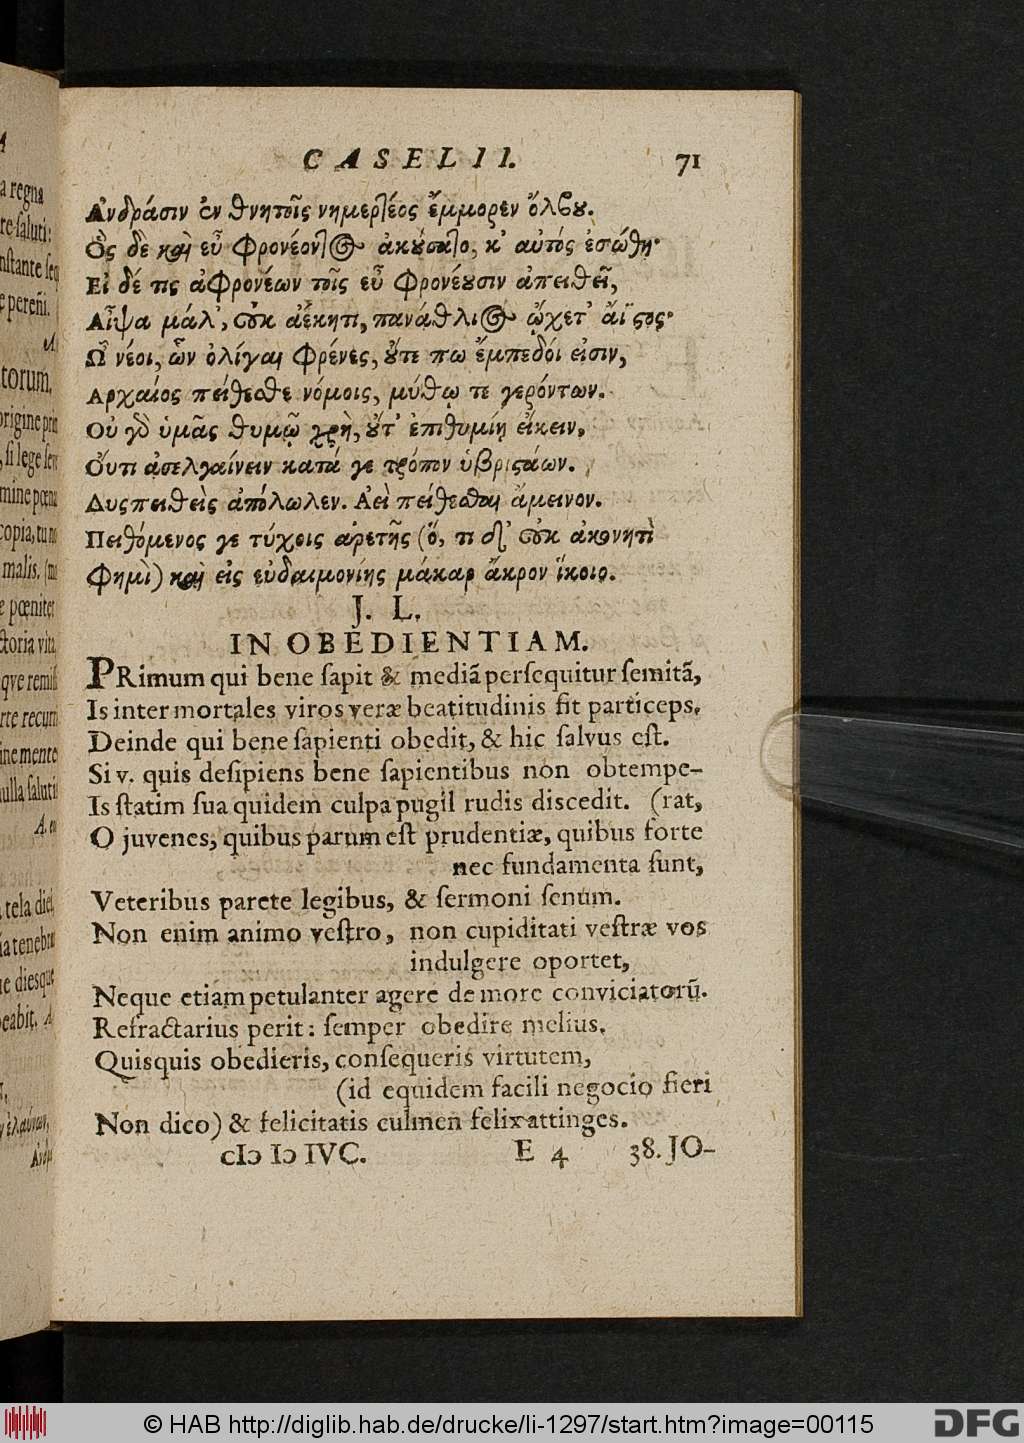 CASELII. 71
Ἀνδράσιν ἐν θνητοῖς νημερτέος ἔμμορεν ὄλβου.
Ὃς δὲ καὶ εὖ φρονέοντος ἀκούσατο, κ' αὐτός ἐσώθη·
Εἰ δέ τις ἀφρονέων τοῖς εὖ φρονέουσιν ἀπειθεῖ,
Αἶψα μάλ', οὐκ ἀέκητι, πανάθλιος ᾤχετ' ἄϊστος·
Ὦ νέοι, ὧν ὀλίγαι φρένες, οὔτε πω ἔμπεδόι εἰσιν,
Αρχαίοις πείθεσθε νόμοις, μύθῳ τε γερόντων.
Οὐ γὸ ὑμᾶς θυμῷ χρὴ, οὔτ' ἐπιθυμίῃ εἴκειν,
Οὔτι ἀσελγαίνειν κατά γε τρόπον ὑβριστάων.
Δυσπειθεὶς ἀπόλωλεν. Ἀεὶ πείθεσθαι ἄμεινον.
Πειθόμενος γε τύχοις ἀρετῆς (ὅ, τι δ' οὐκ ἀκονητὶ
Φημὶ) καὶ εἰς εὐδαιμονίης μάκαρ ἄκρον ἵκοιο.
J. L.
IN OBEDIENTIAM.
PRimum qui bene sapit & mediã persequitur semitã,
Is inter mortales viros veræ beatitudinis fit particeps.
Deinde qui bene sapienti obedit, & hic salvus est.
Si v. quis desipiens bene sapientibus non obtempe-
Is statim sua quidem culpa pugil rudis discedit. (rat,
O juvenes, quibus parum est prudentiæ, quibus forte
nec fundamenta sunt,
Veteribus parete legibus, & sermoni senum.
Non enim animo vestro, non cupiditati vestræ vos
indulgere oportet,
Neque etiam petulanter agere de more conviciatorũ.
Refractarius perit: semper obedire melius.
Quisquis obedieris, consequeris virtutem,
(id equidem facili negocio fieri
Non dico) & felicitatis culmen felix attinges.
cIↄ Iↄ IVC. E 4 38. JO-
© HAB http://diglib.hab.de/drucke/li-1297/start.htm?image=00115
DFG